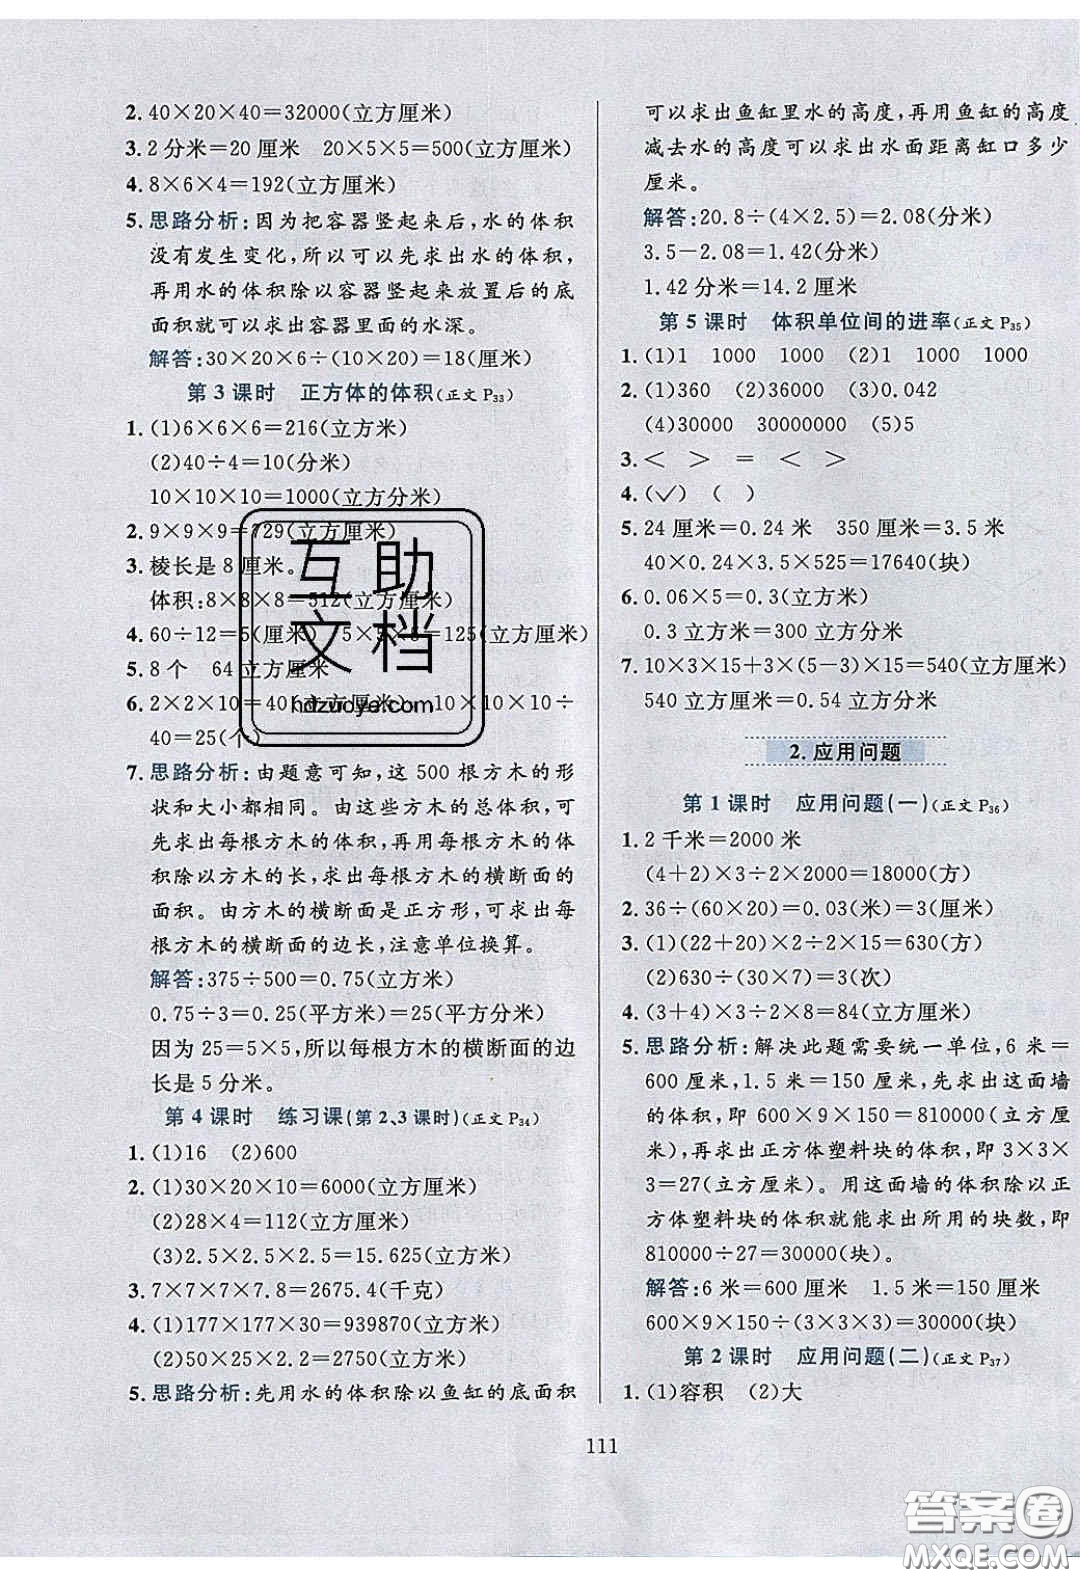 2. 40×20×40=32000(立方厘米)
3. 2分米=20厘米 20×5×5=500(立方厘米)
4. 8×6×4=192(立方厘米)
5. 思路分析:因为把容器竖起来后,水的体积
没有发生变化,所以可以先求出水的体积,
再用水的体积除以容器竖起来放置后的底
面积就可以求出容器里面的水深。
解答:30×20×6÷(10×20)=18(厘米)
第3课时 正方体的体积(正文P33)
1. (1)6×6×6=216(立方米)
(2)40÷4=10(分米)
10×10×10=1000(立方分米)
2. 9×9×9=729(立方厘米)
3. 棱长是8厘米。
体积:8×8×8=512(立方厘米)
4. 60÷12=5(厘米) 5×5×5=125(立方厘米)
5. 8个 64立方厘米
6. 2×2×10=40(立方厘米) 10×10×10÷
40=25(个)
7. 思路分析:由题意可知,这500根方木的形
状和大小都相同。由这些方木的总体积,可
先求出每根方木的体积,再用每根方木的体
积除以方木的长,求出每根方木的横断面的
面积。由方木的横断面是正方形,可求出每
根方木的横断面的边长,注意单位换算。
解答:375÷500=0.75(立方米)
0.75÷3=0.25(平方米)=25(平方分米)
因为25=5×5,所以每根方木的横断面的边
长是5分米。
第4课时 练习课(第2、3课时)(正文P34)
1. (1)16 (2)600
2. (1)30×20×10=6000(立方厘米)
(2)28×4=112(立方厘米)
(3)2.5×2.5×2.5=15.625(立方米)
3. 7×7×7×7.8=2675.4(千克)
4. (1)177×177×30=939870(立方米)
(2)50×25×2.2=2750(立方米)
5. 思路分析:先用水的体积除以鱼缸的底面积
可以求出鱼缸里水的高度,再用鱼缸的高度
减去水的高度可以求出水面距离缸口多少
厘米。
解答:20.8÷(4×2.5)=2.08(分米)
3.5-2.08=1.42(分米)
1.42分米=14.2厘米
第5课时 体积单位间的进率(正文P35)
1. (1)1 1000 1000 (2)1 1000 1000
2. (1)360 (2)36000 (3)0.042
(4)30000 30000000 (5)5
3. < > = < >
4. (✓) ( )
5. 24厘米=0.24米 350厘米=3.5米
40×0.24×3.5×525=17640(块)
6. 0.06×5=0.3(立方米)
0.3立方米=300立方分米
7. 10×3×15+3×(5-3)×15=540(立方厘米)
540立方厘米=0.54立方分米
2.应用问题
第1课时 应用问题(一)(正文P36)
1. 2千米=2000米
(4+2)×3÷2×2000=18000(方)
2. 36÷(60×20)=0.03(米)=3(厘米)
3. (1)(22+20)×2÷2×15=630(方)
(2)630÷(30×7)=3(次)
4. (3+4)×3÷2×8=84(立方厘米)
5. 思路分析:解决此题需要统一单位,6米=
600厘米,1.5米=150厘米,先求出这面墙
的体积,即600×9×150=810000(立方厘
米),再求出正方体塑料块的体积,即3×3×
3=27(立方厘米)。用这面墙的体积除以正
方体塑料块的体积就能求出所用的块数,即
810000÷27=30000(块)。
解答:6米=600厘米 1.5米=150厘米
600×9×150÷(3×3×3)=30000(块)
第2课时 应用问题(二)(正文P37)
1. (1)容积 (2)大
111
互助
文档
hdzuoye.com
答案圈
MXQE.COM